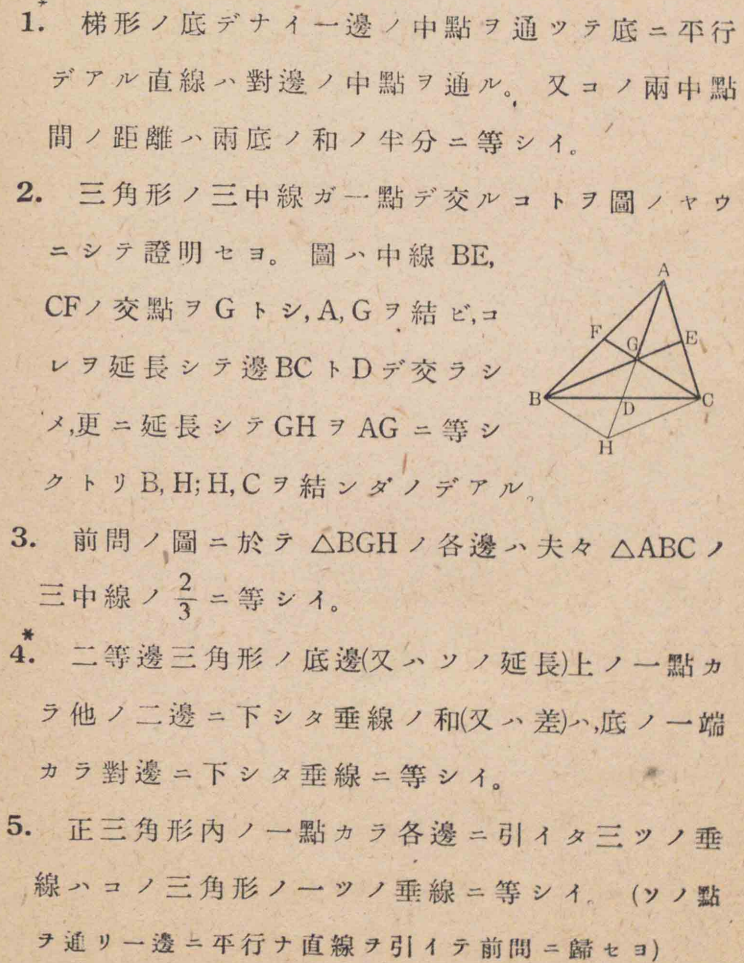 1.* 梯形ノ底デナイ一邊ノ中點ヲ通ツテ底ニ平行
デアル直線ハ對邊ノ中點ヲ通ル。 又コノ兩中點
間ノ距離ハ兩底ノ和ノ半分ニ等シイ。
2. 三角形ノ三中線ガ一點デ交ルコトヲ圖ノヤウ
ニシテ證明セヨ。 圖ハ中線 BE,
CFノ交點ヲGトシ,A,Gヲ結ビ,コ
レヲ延長シテ邊BCトDデ交ラシ
メ,更ニ延長シテGHヲAGニ等シ
クトリB,H;H,Cヲ結ンダノデアル。
A
F
G
E
B
D
C
H
3. 前問ノ圖ニ於テ △BGHノ各邊ハ夫々 △ABCノ
三中線ノ 2/3 ニ等シイ。
4.* 二等邊三角形ノ底邊(又ハソノ延長)上ノ一點カ
ラ他ノ二邊ニ下シタ垂線ノ和(又ハ差)ハ,底ノ一端
カラ對邊ニ下シタ垂線ニ等シイ。
5. 正三角形内ノ一點カラ各邊ニ引イタ三ツノ垂
線ハコノ三角形ノ一ツノ垂線ニ等シイ。 (ソノ點
ヲ通リ一邊ニ平行ナ直線ヲ引イテ前問ニ歸セヨ)